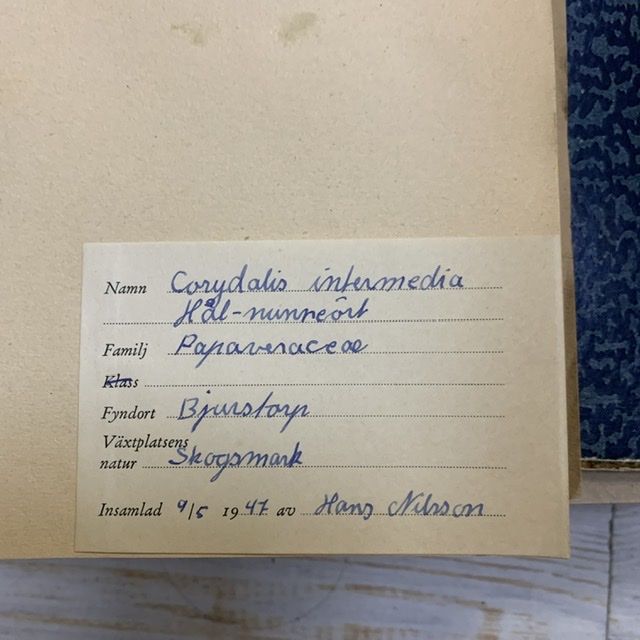 Namn Corydalis intermedia
Hål-nunneört
Familj Papaveraceae
Klass
Fyndort Bjurstorp
Växtplatsens
natur Skogsmark
Insamlad 9/5 1947 av Hans Nilsson